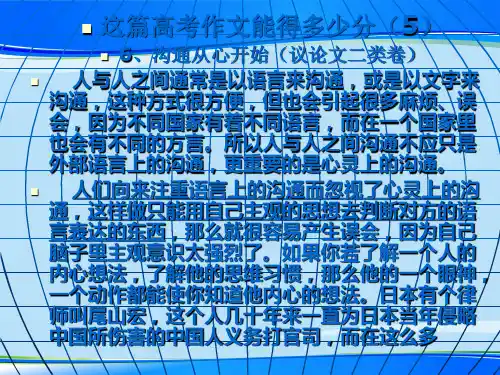 这篇高考作文能得多少分（5）
6、沟通从心开始（议论文二类卷）
人与人之间通常是以语言来沟通，或是以文字来
沟通，这种方式很方便，但也会引起很多麻烦、误
会，因为不同国家有着不同语言，而在一个国家里
也会有不同的方言。所以人与人之间沟通不应只是
外部语言上的沟通，更重要的是心灵上的沟通。
人们向来注重语言上的沟通而忽视了心灵上的沟
通，这样做只能用自己主观的思想去判断对方的语
言表达的东西，那么就很容易产生误会，因为自己
脑子里主观意识太强烈了。如果你若了解一个人的
内心想法，了解他的思维习惯，那么他的一个眼神，
一个动作都能使你知道他内心的想法。日本有个律
师叫尾山宏，这个人几十年来一直为日本当年侵略
中国所伤害的中国人义务打官司，而在这么多